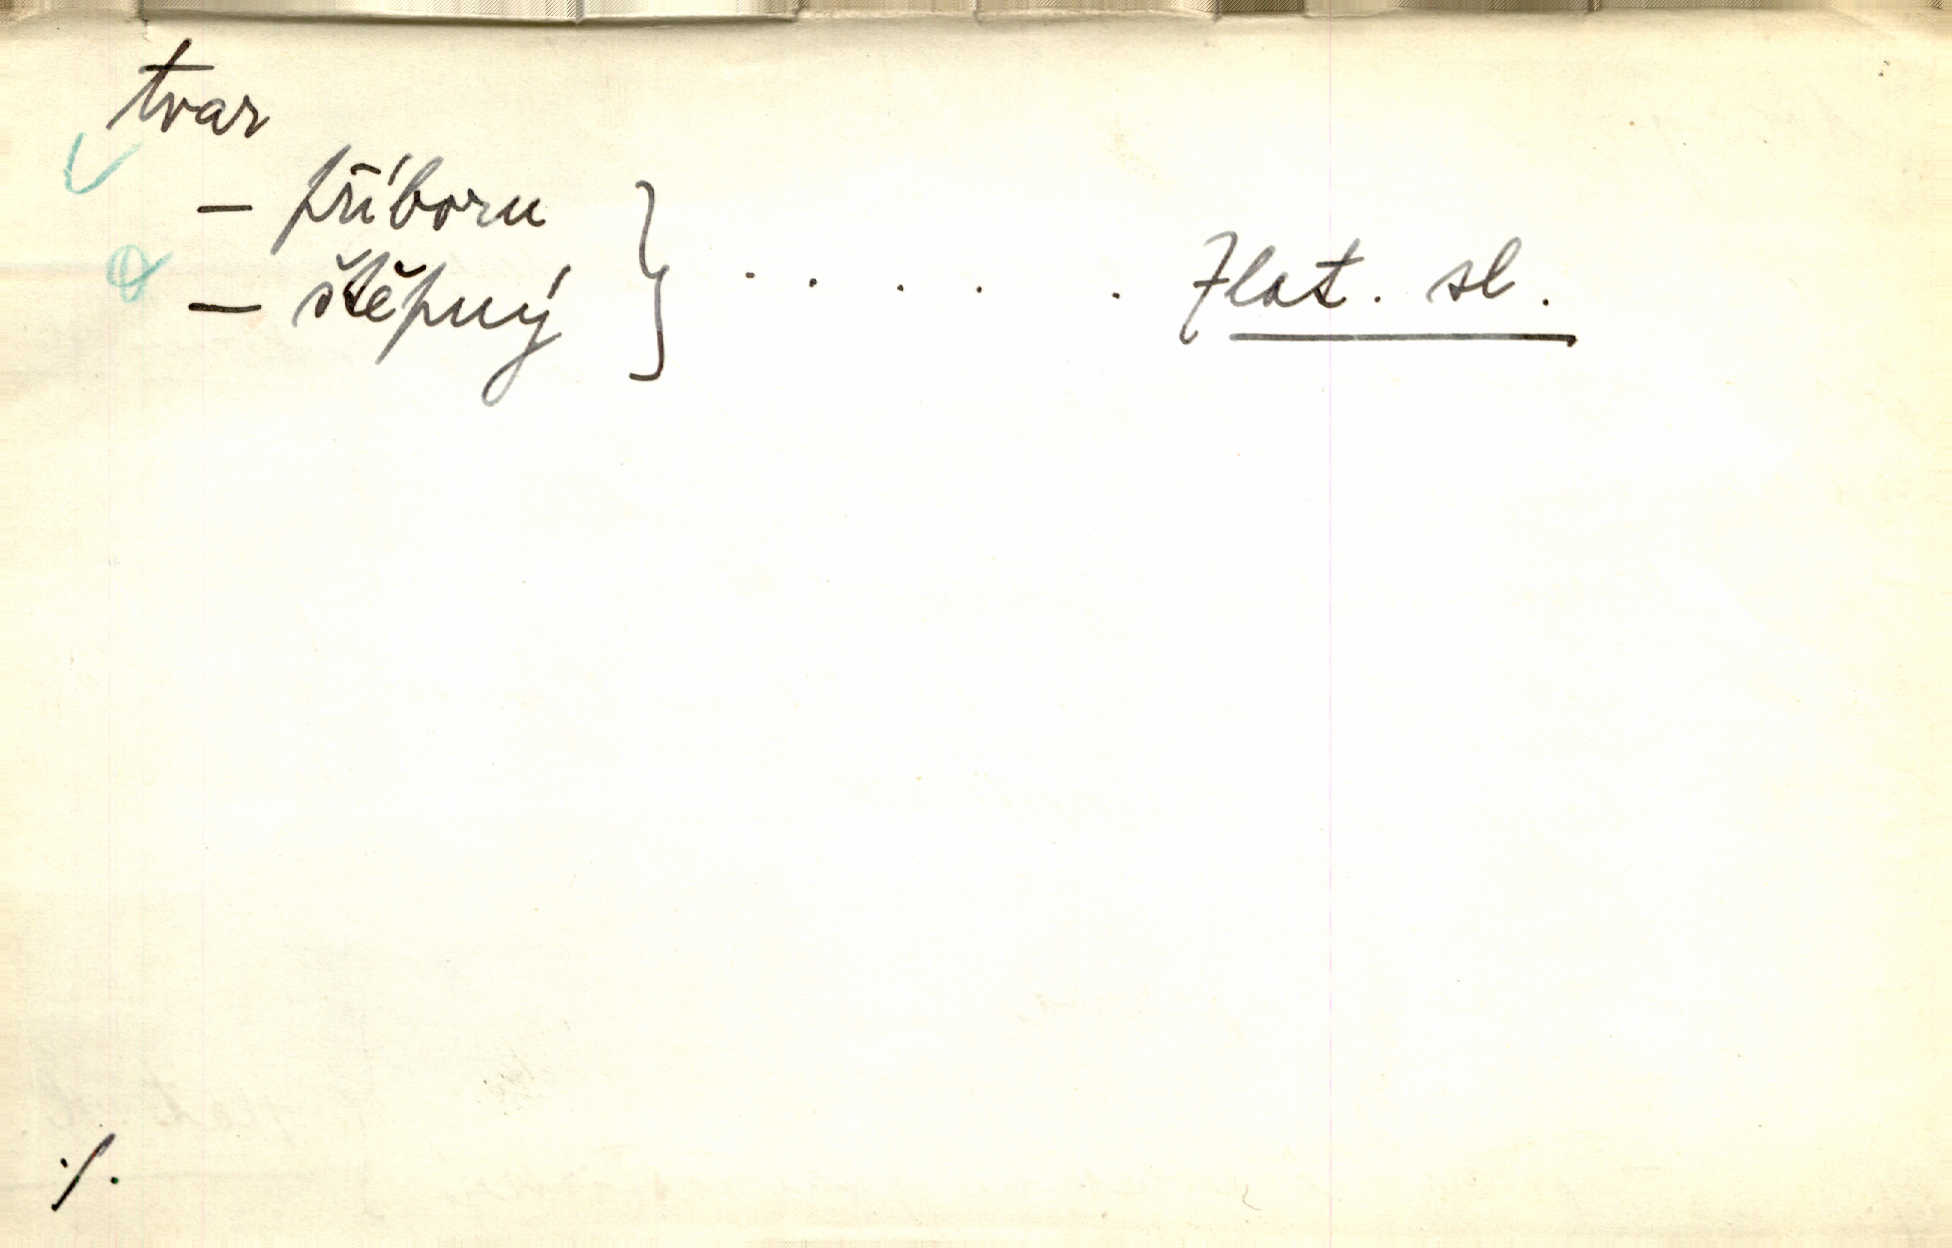 tvar
— příboru
— štěpný } . . . . . Zlat. sl.
./.